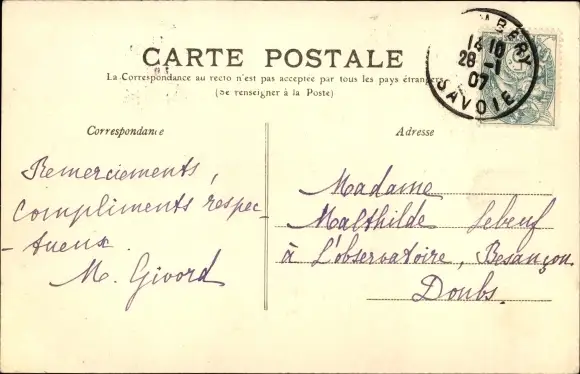 CARTE POSTALE
La Correspondance au recto n'est pas acceptée par tous les pays étrangers
(se renseigner à la Poste)
MBÉRY
14 10
28 -1
07
SAVOIE
Correspondance
Adresse
Remerciements,
compliments respec-
-tueux.
M. Givord
Madame
Malthilde Lebeuf
à L'observatoire, Besançon
Doubs.